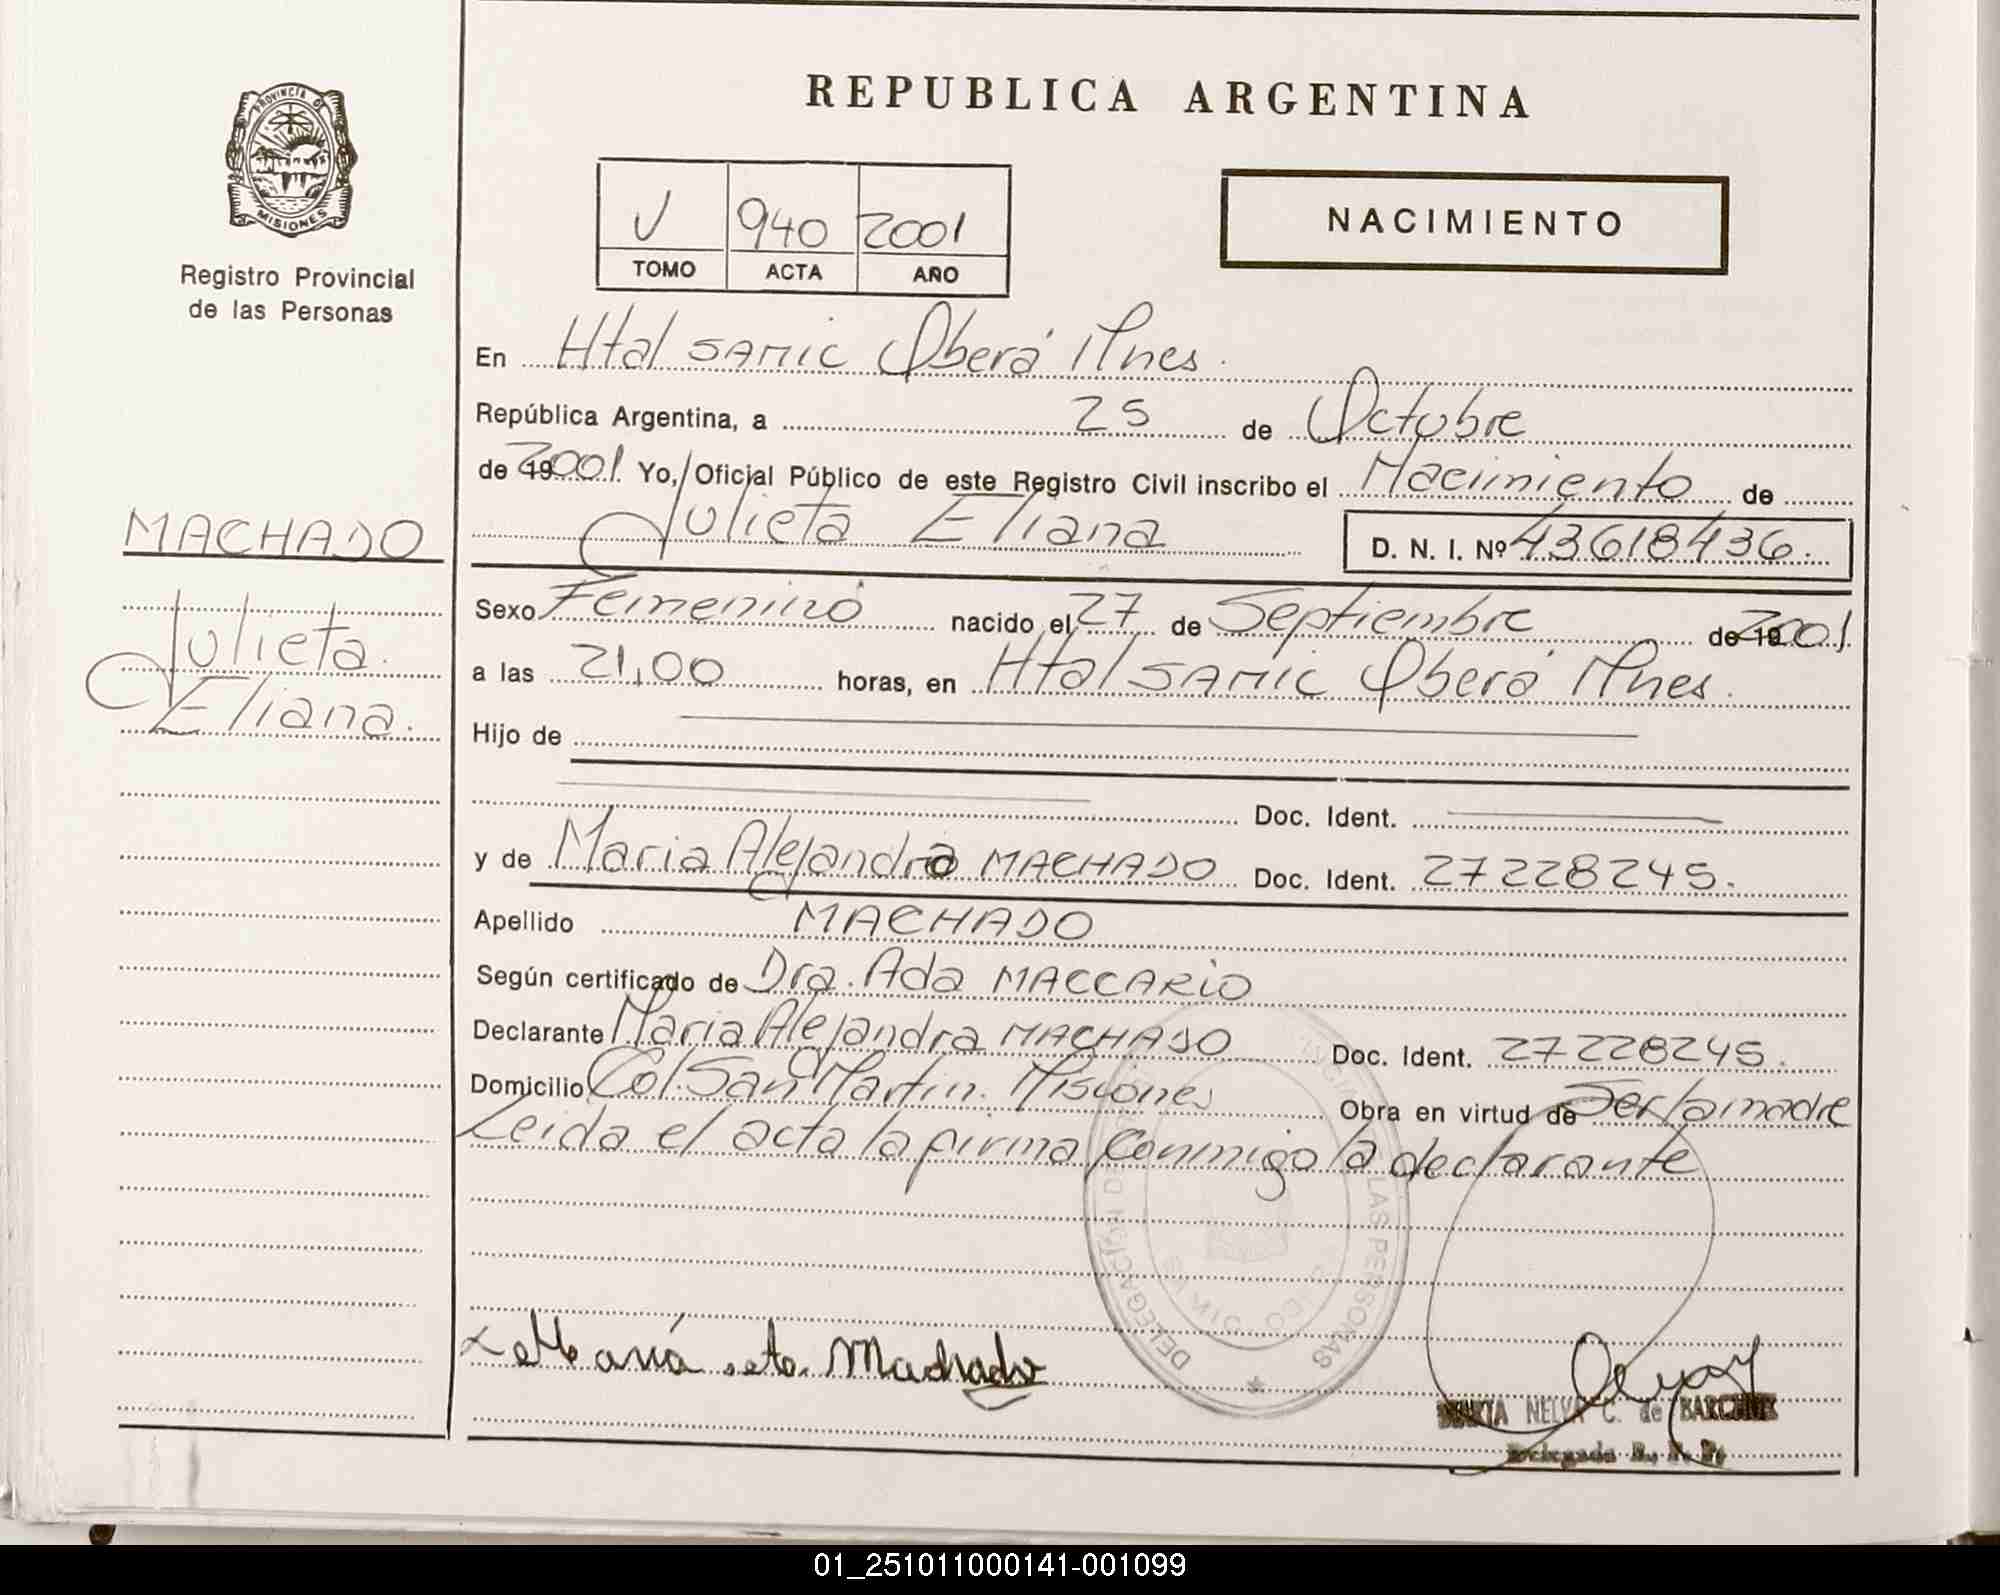 PROVINCIA DE
MISIONES
Registro Provincial
de las Personas
MACHADO
Julieta
Eliana.
REPUBLICA ARGENTINA
V 940 2001
TOMO ACTA AÑO
NACIMIENTO
En Htal SAMIC Oberá Mnes.
República Argentina, a 25 de Octubre
de 192001. Yo, Oficial Público de este Registro Civil inscribo el Nacimiento de
Julieta Eliana D. N. I. Nº 43618436.
Sexo Femenino nacido el 27 de Septiembre de 192001.
a las 21,00 horas, en Htal SAMIC Oberá Mnes.
Hijo de
Doc. Ident.
y de Maria Alejandra MACHADO Doc. Ident. 27228245.
Apellido MACHADO
Según certificado de Dra. Ada MACCARIO
Declarante Maria Alejandra MACHADO Doc. Ident. 27228245.
Domicilio Col. San Martin. Misiones Obra en virtud de Ser la madre
Leida el acta la firma conmigo la declarante
DELEGACIÓN DE LAS PERSONAS
Machado
MARTA NELVA C. de
Delegada R. P. P.
01_251011000141-001099